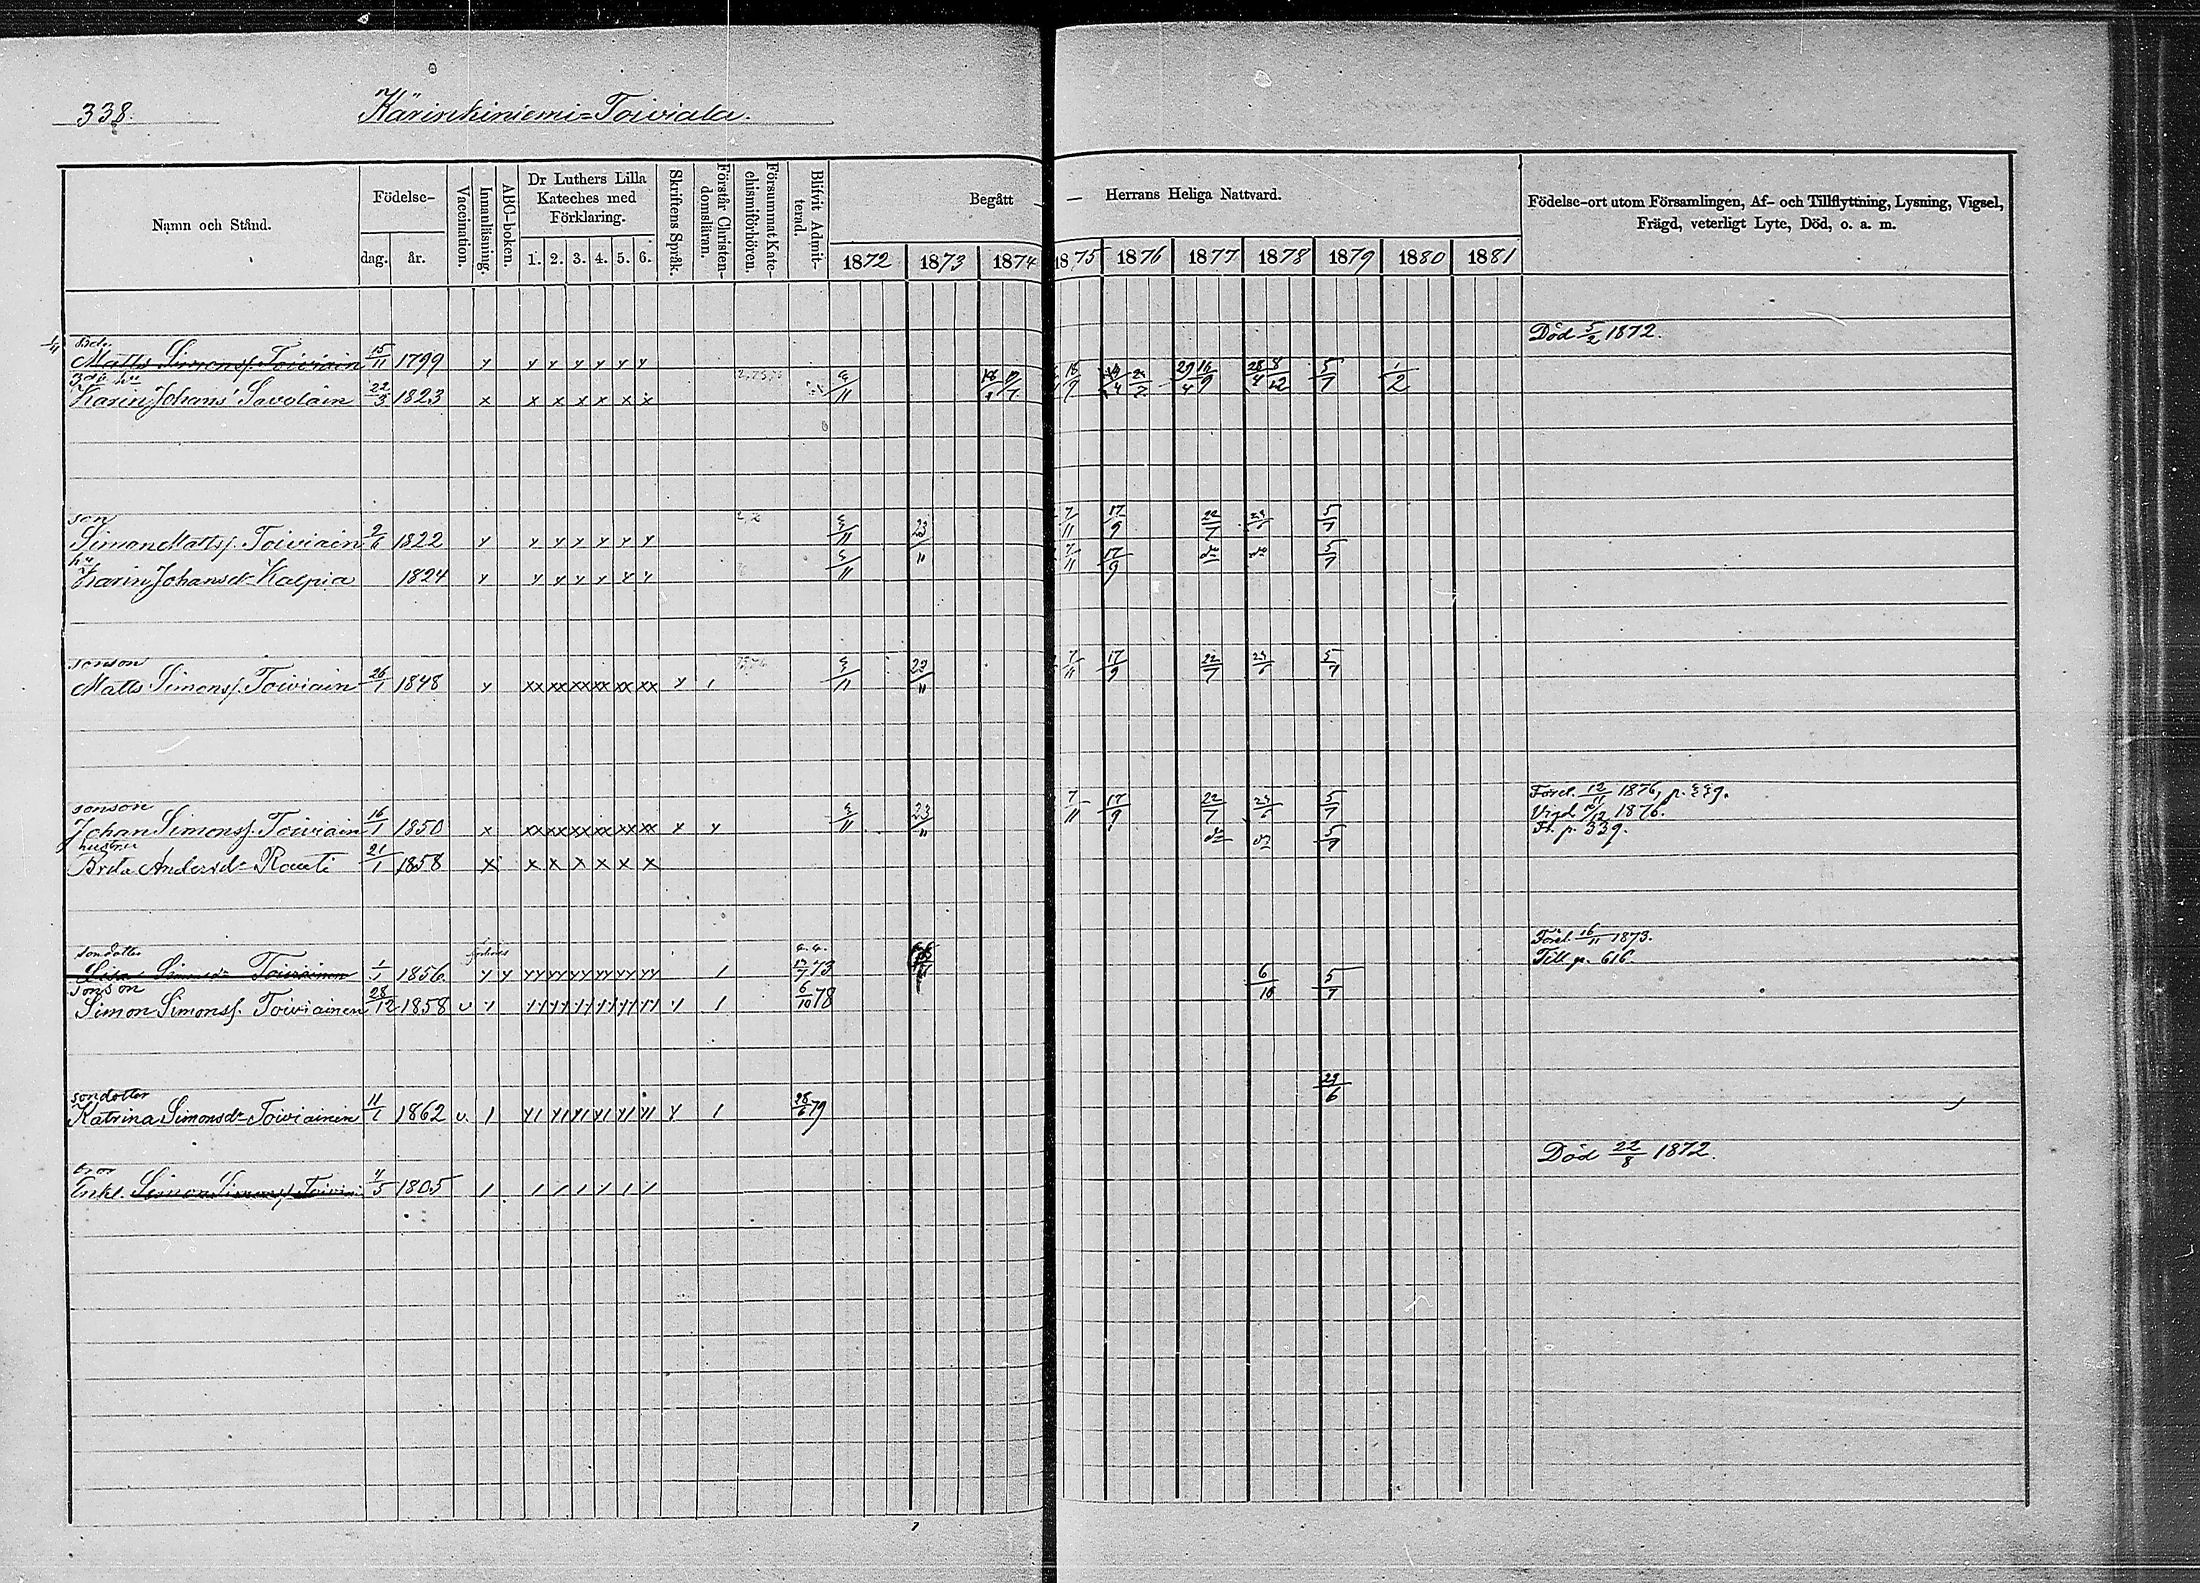 338.
Kärinkiniemi=Toiviala.
Namn och Stånd.
Födelse-
dag.
år.
Vaccination.
Innanläsning.
ABC-boken.
Dr Luthers Lilla
Kateches med
Förklaring.
1. 2. 3. 4. 5. 6.
Skriftens Språk.
Förstår Christen-
domsläran.
Försummat Kate-
chismiförhören.
Blifvit Admit-
terad.
Begått — Herrans Heliga Nattvard.
1872 1873 1874 1875 1876 1877 1878 1879 1880 1881
Födelse-ort utom Församlingen, Af- och Tillflyttning, Lysning, Vigsel,
Frägd, veterligt Lyte, Död, o. a. m.
Död 5/2 1872.
Matts Simonss. Toiviain 15/11 1799 y y y y y y y
hu
Karin Johans Savolain 22/3 1823 x x x x x x x 5/7 1/2
son
Simon Mattss. Toiviain 2/6 1822 y y y y y y y 23/11 7/11 17/9 22/7 5/7
hu
Karin Johansdr Kalpia 1824 y y y y y y y 7/11 17/9 do do 5/7
sonson
Matts Simonss. Toiviain 26/1 1848 y xx xx xx xx xx xx y 1 23/11 7/11 17/9 22/7 5/7
sonson
Johan Simonss. Toiviain 16/1 1850 x xx xx xx xx xx xx y y 23/11 7/11 17/9 22/7 5/7
Vigd 1876.
p. 339.
hustru
Brita Andersdr Rauti 21/1 1858 x x x x x x x do do 5/7
sondotter
Lisa Simonsdr Toiviainen 1/1 1856 y y yy yy yy yy yy yy 1 73
16/11 1873.
Till p. 616.
sonson
Simon Simonss. Toiviainen 28/12 1858 v 1 6/10 78 6/10 5/7
sondotter
Katrina Simonsdr Toiviainen 11/1 1862 v. 1 1 28/6 79 29/6
Död 22/8 1872.
bror
Enkl. Simon Simonss. Toivia 4/5 1805 1 1 1 1 1 1 1